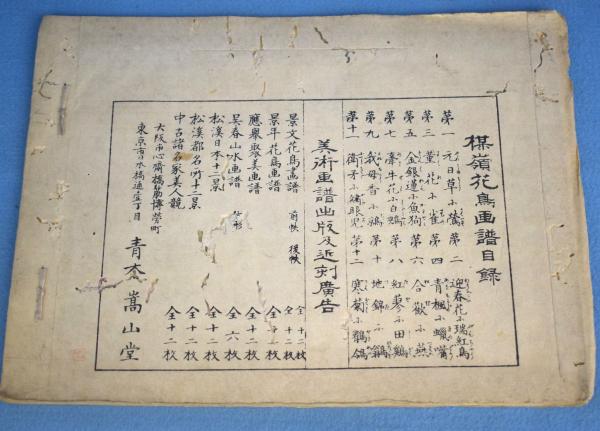 楳嶺花鳥画譜目録
第一 元日草に鶯 第二 迎春花に瑞紅鳥
第三 菫花に雀 第四 青楓に蠟嘴
第五 金銀蓮に魚狗 第六 合歓に燕
第七 牽牛花に白鷴 第八 紅蓼に田鶏
第九 我毋香に鶉 第十 地錦に鶲
第十一 衛矛に繍眼児 第十二 寒菊に鶺鴒
美術画譜出版及近刻廣告
景文花鳥画譜 前帙 後帙 全十二枚
景年花鳥画譜 全十二枚
應擧翠美画譜 全十二枚
呉春山水画譜 全六枚
松溪日本十二景 全十二枚
松溪都名所十二景 全十二枚
中古諸名家美人競 全十二枚
大阪市心齋橋筋博労町
東京市日本橋通壱丁目
青木嵩山堂